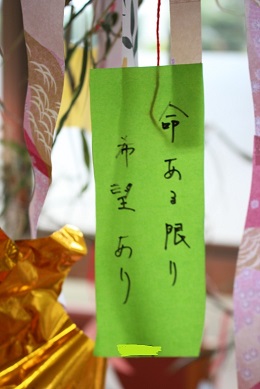 命ある限り
希望あり